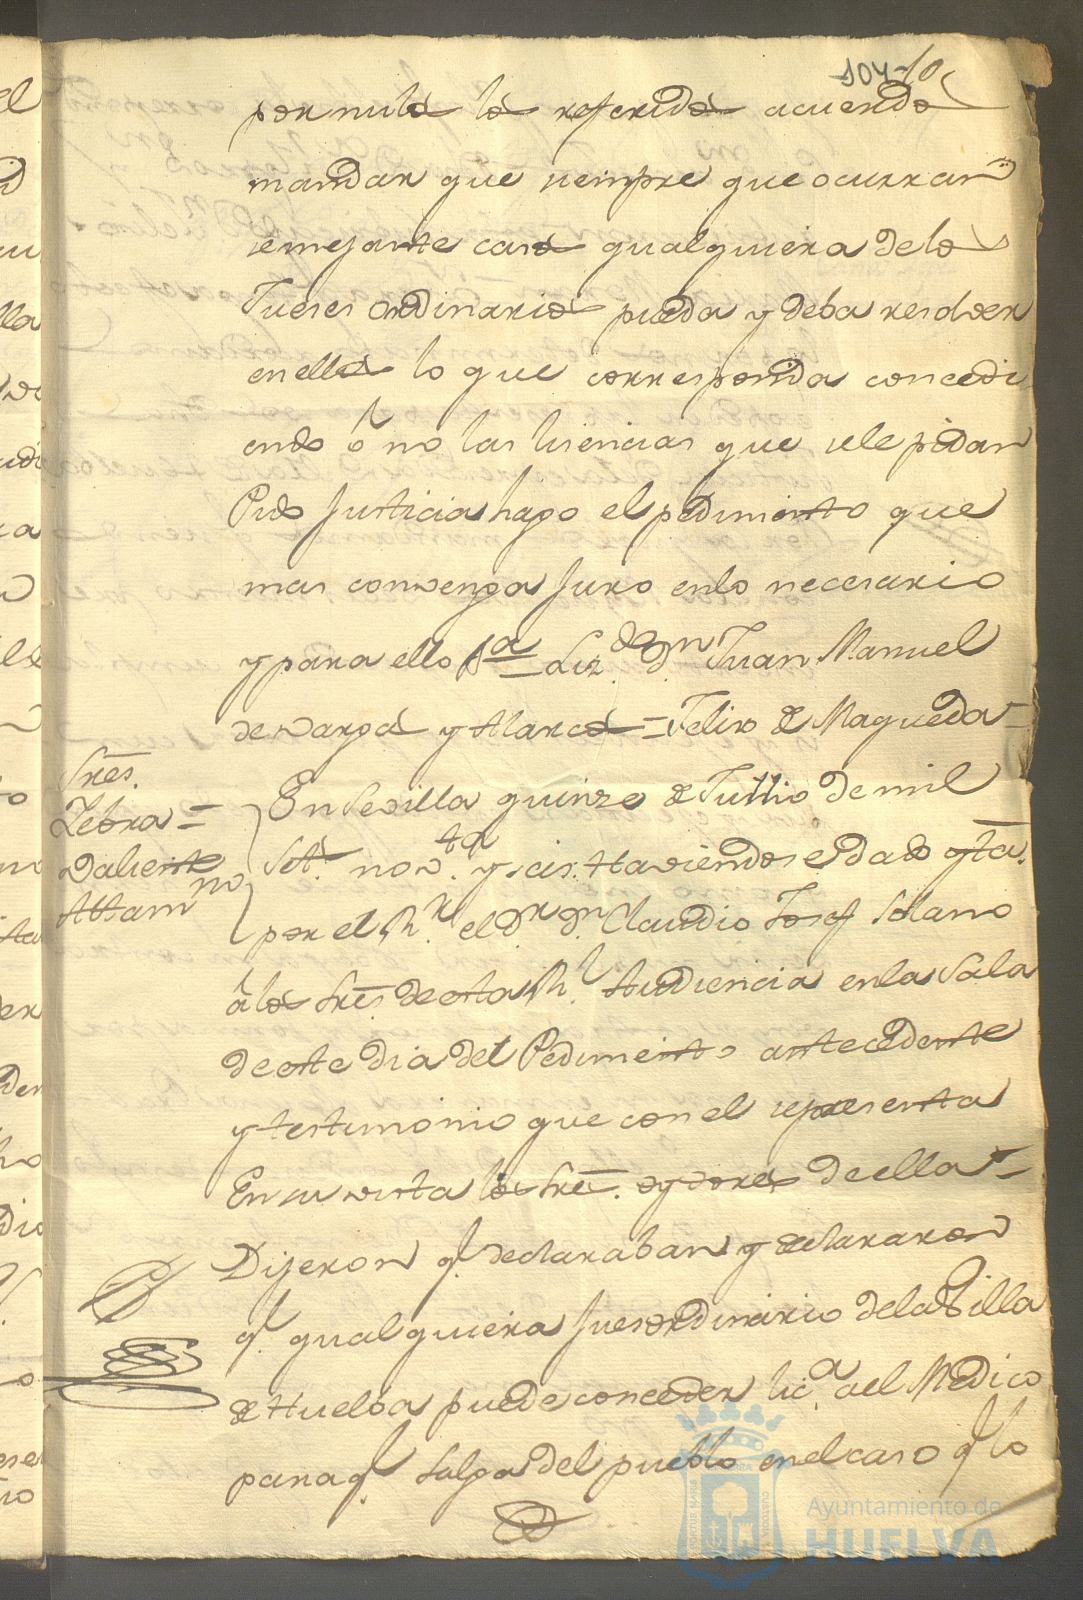 104-10
por nulos los referidos acuerdos
mandar que siempre que ocurran
semejantes casos qualquiera de los
Jueses ordinarios pueda y deba resolver
en ellos lo que corresponda concedi
endo ó no las lisencias que se le pidan
Pido Justicia hago el pedimento que
mas convenga Juro en lo necesario
y para ello &ª = Liz.do D.n Juan Manuel
de Vargas y Alarcos = Felix de Maqueda =
Sres.
Zebra =
Valiente
Attam no
En Sevilla quinze de Jullio de mil
Set.s nov.ta y seis. Haviendose dado qta.
por el R.l el D.r D.n Claudio Josef Solano
á los Sres. de esta R.l Audiencia en la Sala
de este dia del Pedimento antecedente
y testimonio que con el se presenta
En su vista los Sres. oydores de ella =
Dijeron q.e declaraban y declararon
q.e qualquiera Jues ordinario de la Villa
de Huelva puede conceder lic.a al Medico
para q.e salga del pueblo en el caso q.e lo
Ayuntamiento de
HUELVA